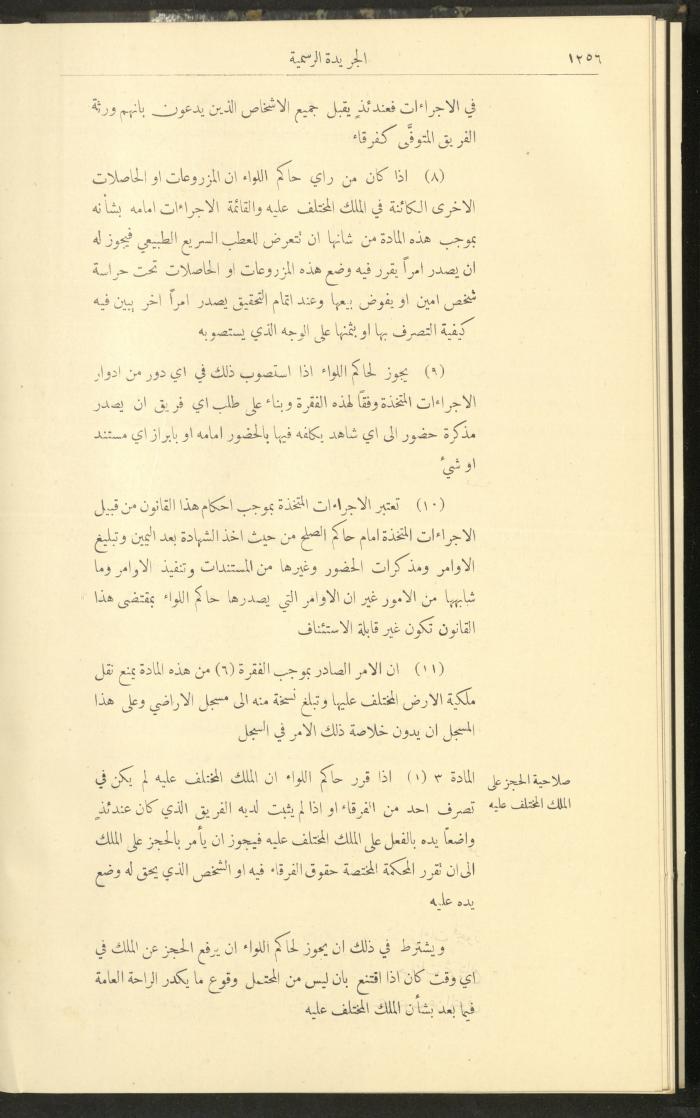 ١٢٥٦
الجريدة الرسمية
في الاجراءات فعندئذٍ يقبل جميع الاشخاص الذين يدعون بانهم ورثة
الفريق المتوفَّى كفرقاء
(٨) اذا كان من راي حاكم اللواء ان المزروعات او الحاصلات
الاخرى الكائنة في الملك المختلف عليه والقائمة الاجراءات امامه بشأنه
بموجب هذه المادة من شانها ان تتعرض للعطب السريع الطبيعي فيجوز له
ان يصدر امراً يقرر فيه وضع هذه المزروعات او الحاصلات تحت حراسة
شخص امين او يفوض بيعها وعند اتمام التحقيق يصدر امراً اخر يبين فيه
كيفية التصرف بها او بثمنها على الوجه الذي يستصوبه
(٩) يجوز لحاكم اللواء اذا استصوب ذلك في اي دور من ادوار
الاجراءات المتخذة وفقاً لهذه الفقرة وبناء على طلب اي فريق ان يصدر
مذكرة حضور الى اي شاهد يكلفه فيها بالحضور امامه او بابراز اي مستند
او شيءٍ
(١٠) تعتبر الاجراءات المتخذة بموجب احكام هذا القانون من قبيل
الاجراءات المتخذة امام حاكم الصلح من حيث اخذ الشهادة بعد اليمين وتبليغ
الاوامر ومذكرات الحضور وغيرها من المستندات وتنفيذ الاوامر وما
شابهها من الامور غير ان الاوامر التي يصدرها حاكم اللواء بمقتضى هذا
القانون تكون غير قابلة الاستئناف
(١١) ان الامر الصادر بموجب الفقرة (٦) من هذه المادة يمنع نقل
ملكية الارض المختلف عليها وتبلغ نسخة منه الى مسجل الاراضي وعلى هذا
المسجل ان يدون خلاصة ذلك الامر في السجل
صلاحية الحجز على
الملك المختلف عليه
المادة ٣ (١) اذا قرر حاكم اللواء ان الملك المختلف عليه لم يكن في
تصرف احد من الفرقاء او اذا لم يثبت لديه الفريق الذي كان عندئذٍ
واضعاً يده بالفعل على الملك المختلف عليه فيجوز ان يأمر بالحجز على الملك
الى ان تقرر المحكمة المختصة حقوق الفرقاء فيه او الشخص الذي يحق له وضع
يده عليه
ويشترط في ذلك ان يجوز لحاكم اللواء ان يرفع الحجز عن الملك في
اي وقت كان اذا اقتنع بان ليس من المحتمل وقوع ما يكدر الراحة العامة
فيما بعد بشأن الملك المختلف عليه